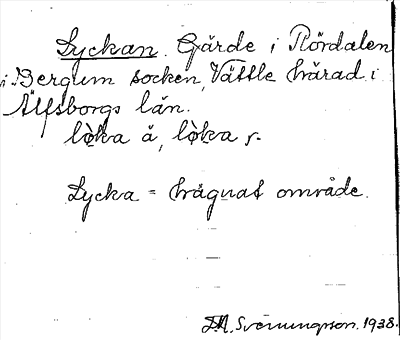 Lyckan. Gärde i Rördalen
i Bergum socken, Vättle härad i
Älfsborgs län.
lo̩ka å, lo̩ka r.
Lycka = hägnat område.
Sveningson. 1938.